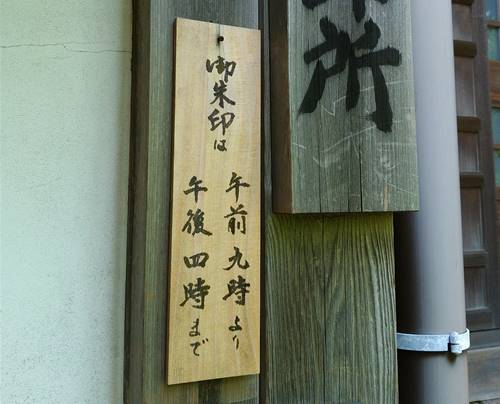 所
御朱印は
午前九時より
午後四時まで